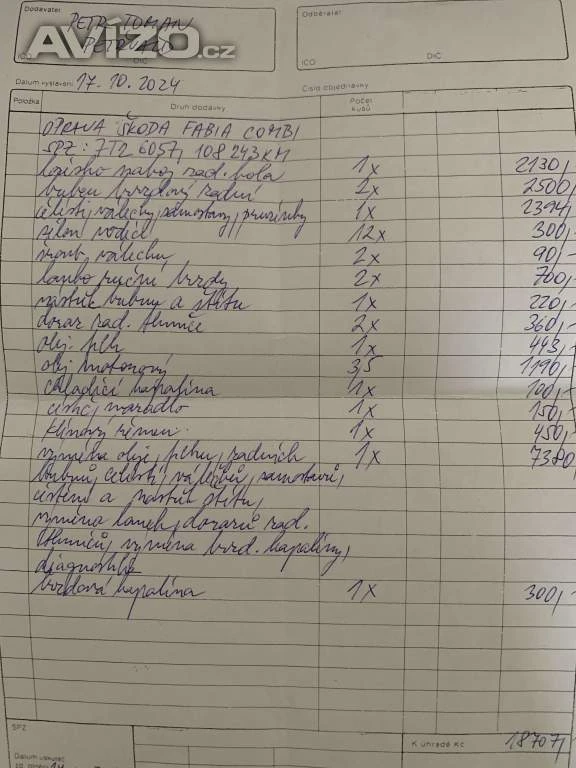 Dodavatel:
Odběratel:
PETR TOMAN
PETŘVALD
AVÍZO.cz
IČO
DIČ
IČO
DIČ
Datum vystavení 17. 10. 2024
Číslo objednávky
Položka Druh dodávky Počet kusů
OPRAVA ŠKODA FABIA COMBI
SPZ: 7T2 6057, 108 243 KM
ložisko naboj zad. kola 1x 2130,-
buben brzdový zadní 2x 2500,-
čelisti, válečky, samostavy, pružinky 1x 2394,-
silen vodič 12x 300,-
šroub válečku 2x 90,-
lanko ruční brzdy 2x 700,-
nástřik bubnu a štítu 1x 220,-
doraz zad. tlumiče 2x 360,-
olej. filtr 1x 443,-
olej motorový 3,5 1190,-
chladící kapalina 1x 100,-
čistič, mazadlo 1x 150,-
klínový řemen 1x 450,-
výměna oleje, filtru, zadních 1x 7380,-
bubnů, čelistí, válečků, samostavů,
čištění a nástřik štítu,
výměna lanek, dorazů zad.
tlumičů, výměna brzd. kapaliny,
diagnostika
brzdová kapalina 1x 300,-
SPZ
K úhradě Kč 18707,-
Datum uskuteč.